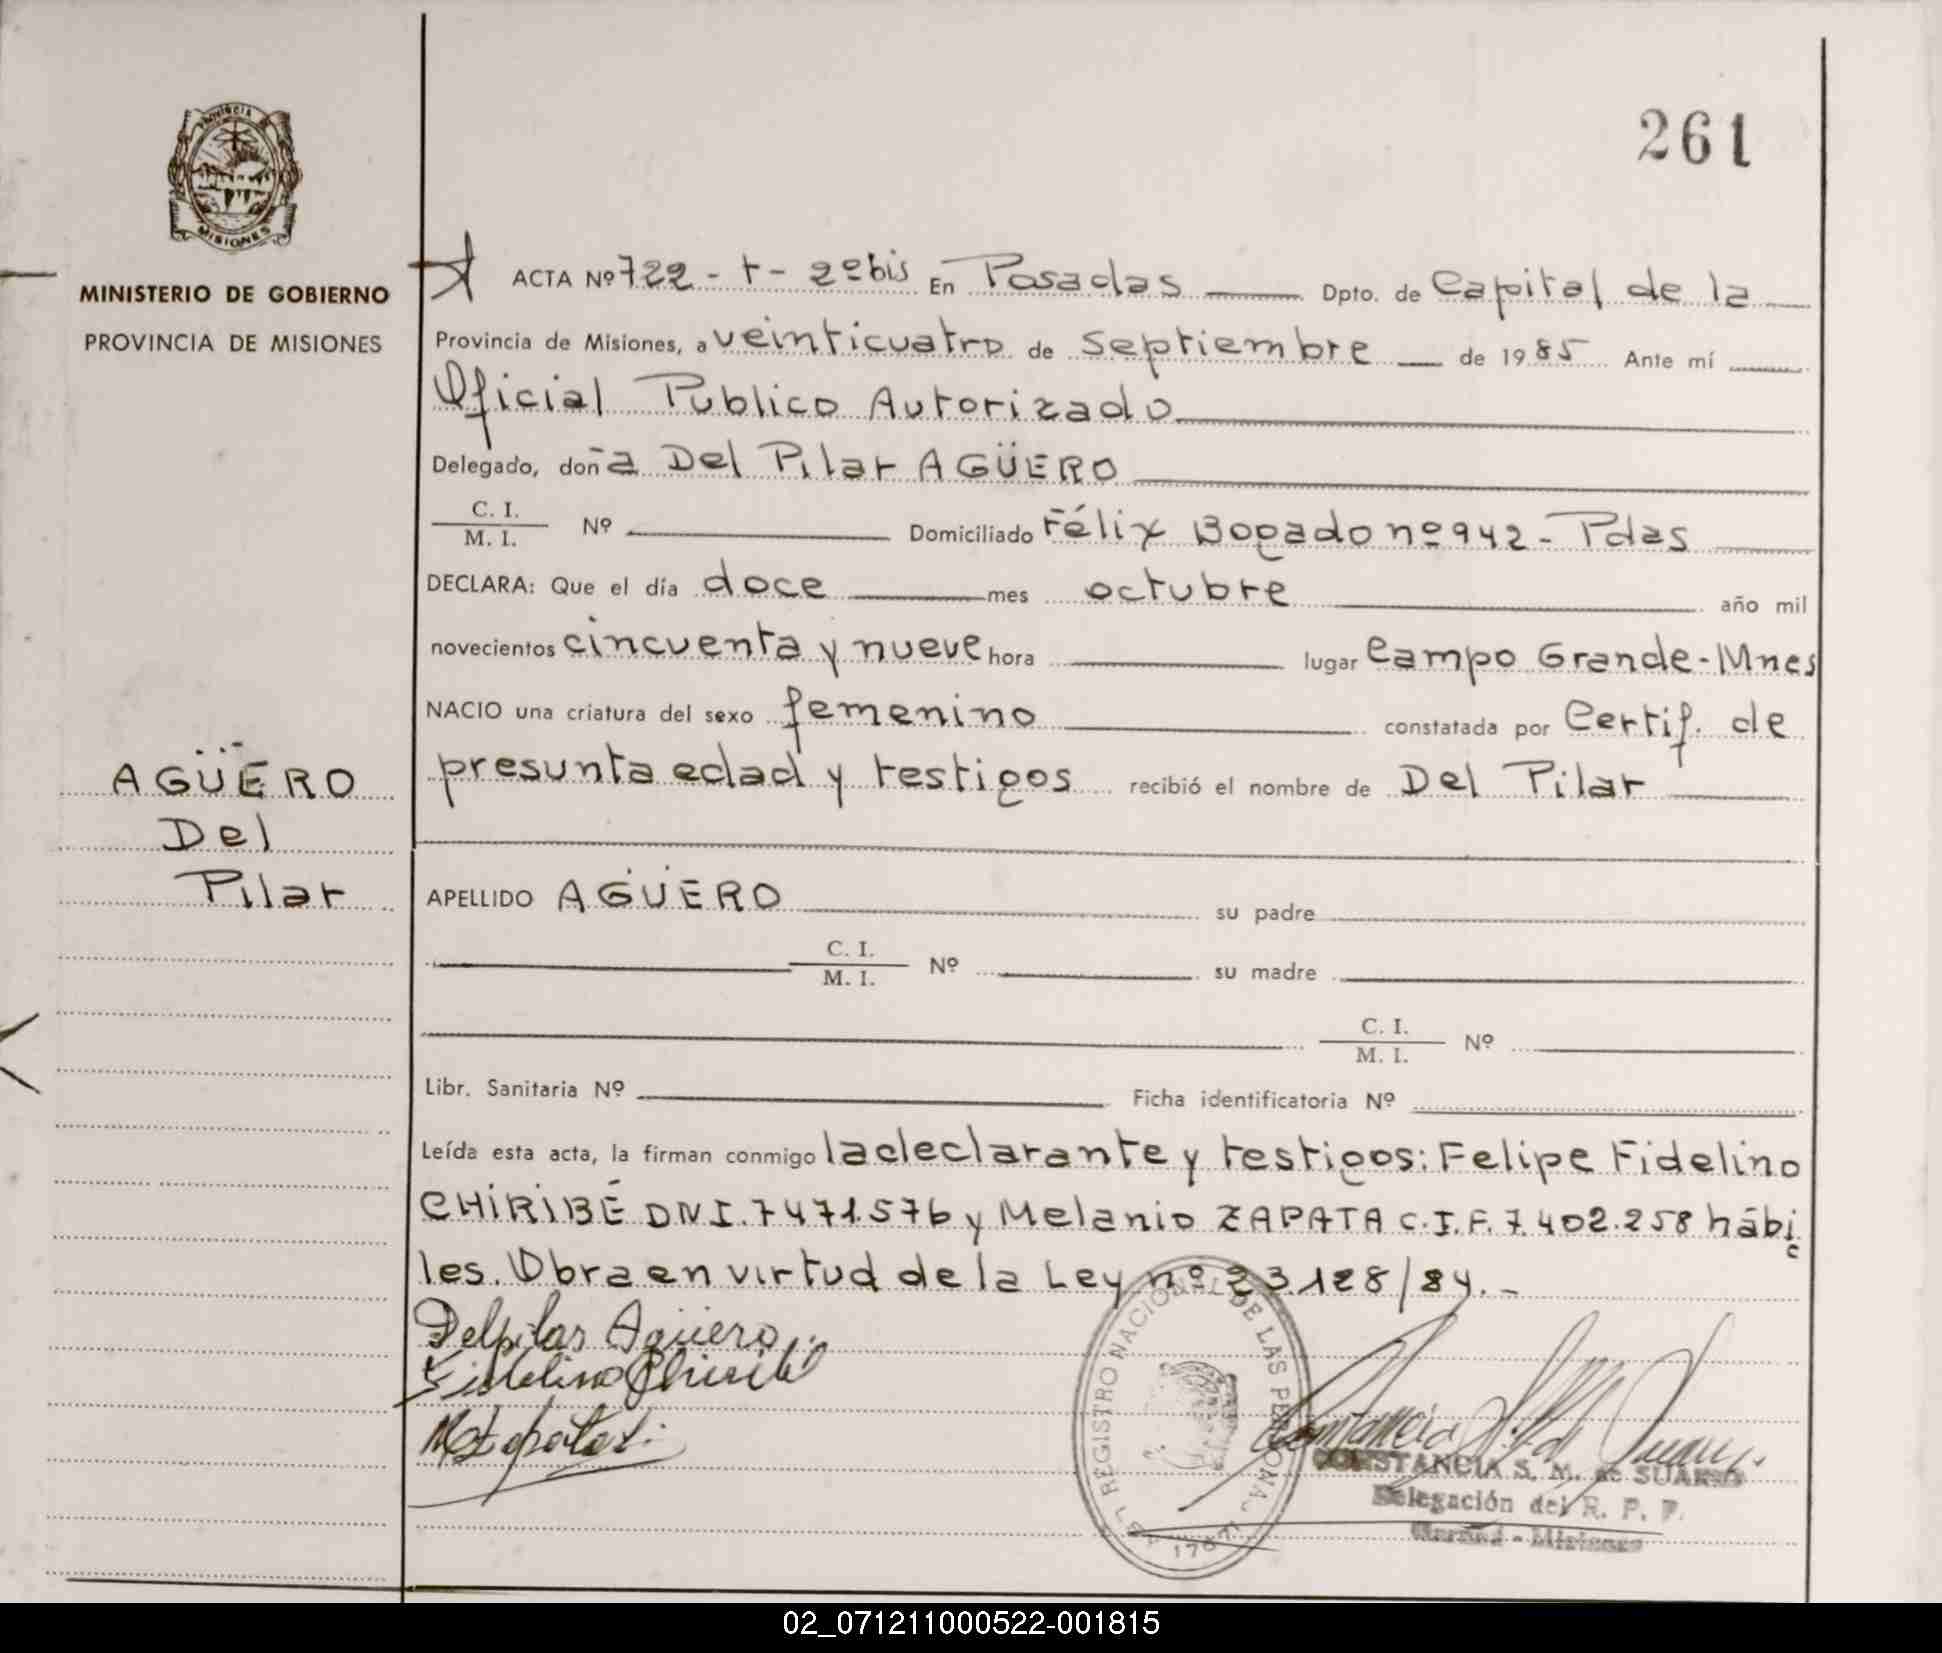 261
Provincia
MISIONES
MINISTERIO DE GOBIERNO
PROVINCIA DE MISIONES
AGÜERO
Del
Pilar
ACTA Nº 722 - t - 2º bis En Posadas Dpto. de Capital de la
Provincia de Misiones, a veinticuatro de septiembre de 1985 Ante mí
Oficial Publico Autorizado
Delegado, doña Del Pilar AGÜERO
C. I.
M. I. Nº Domiciliado Félix Bogado nº 942 - Pdas
DECLARA: Que el día doce mes octubre año mil
novecientos cincuenta y nueve hora lugar Campo Grande - Mnes
NACIO una criatura del sexo femenino constatada por Certif. de
presunta edad y testigos recibió el nombre de Del Pilar
APELLIDO AGÜERO su padre
C. I.
M. I. Nº su madre
C. I.
M. I. Nº
Libr. Sanitaria Nº Ficha identificatoria Nº
Leída esta acta, la firman conmigo la declarante y testigos: Felipe Fidelino
CHIRIBÉ DNI. 7471.576 y Melanio ZAPATA C.I.F. 7.402.258 hábi
les. Obra en virtud de la Ley nº 23.128/84. -
Delpilar Agüero
Fidelino Chiribé
REGISTRO NACIONAL DE LAS PERSONAS
CONSTANCIA S. M. de SUAREZ
Delegación del R. P. P.
02_071211000522-001815